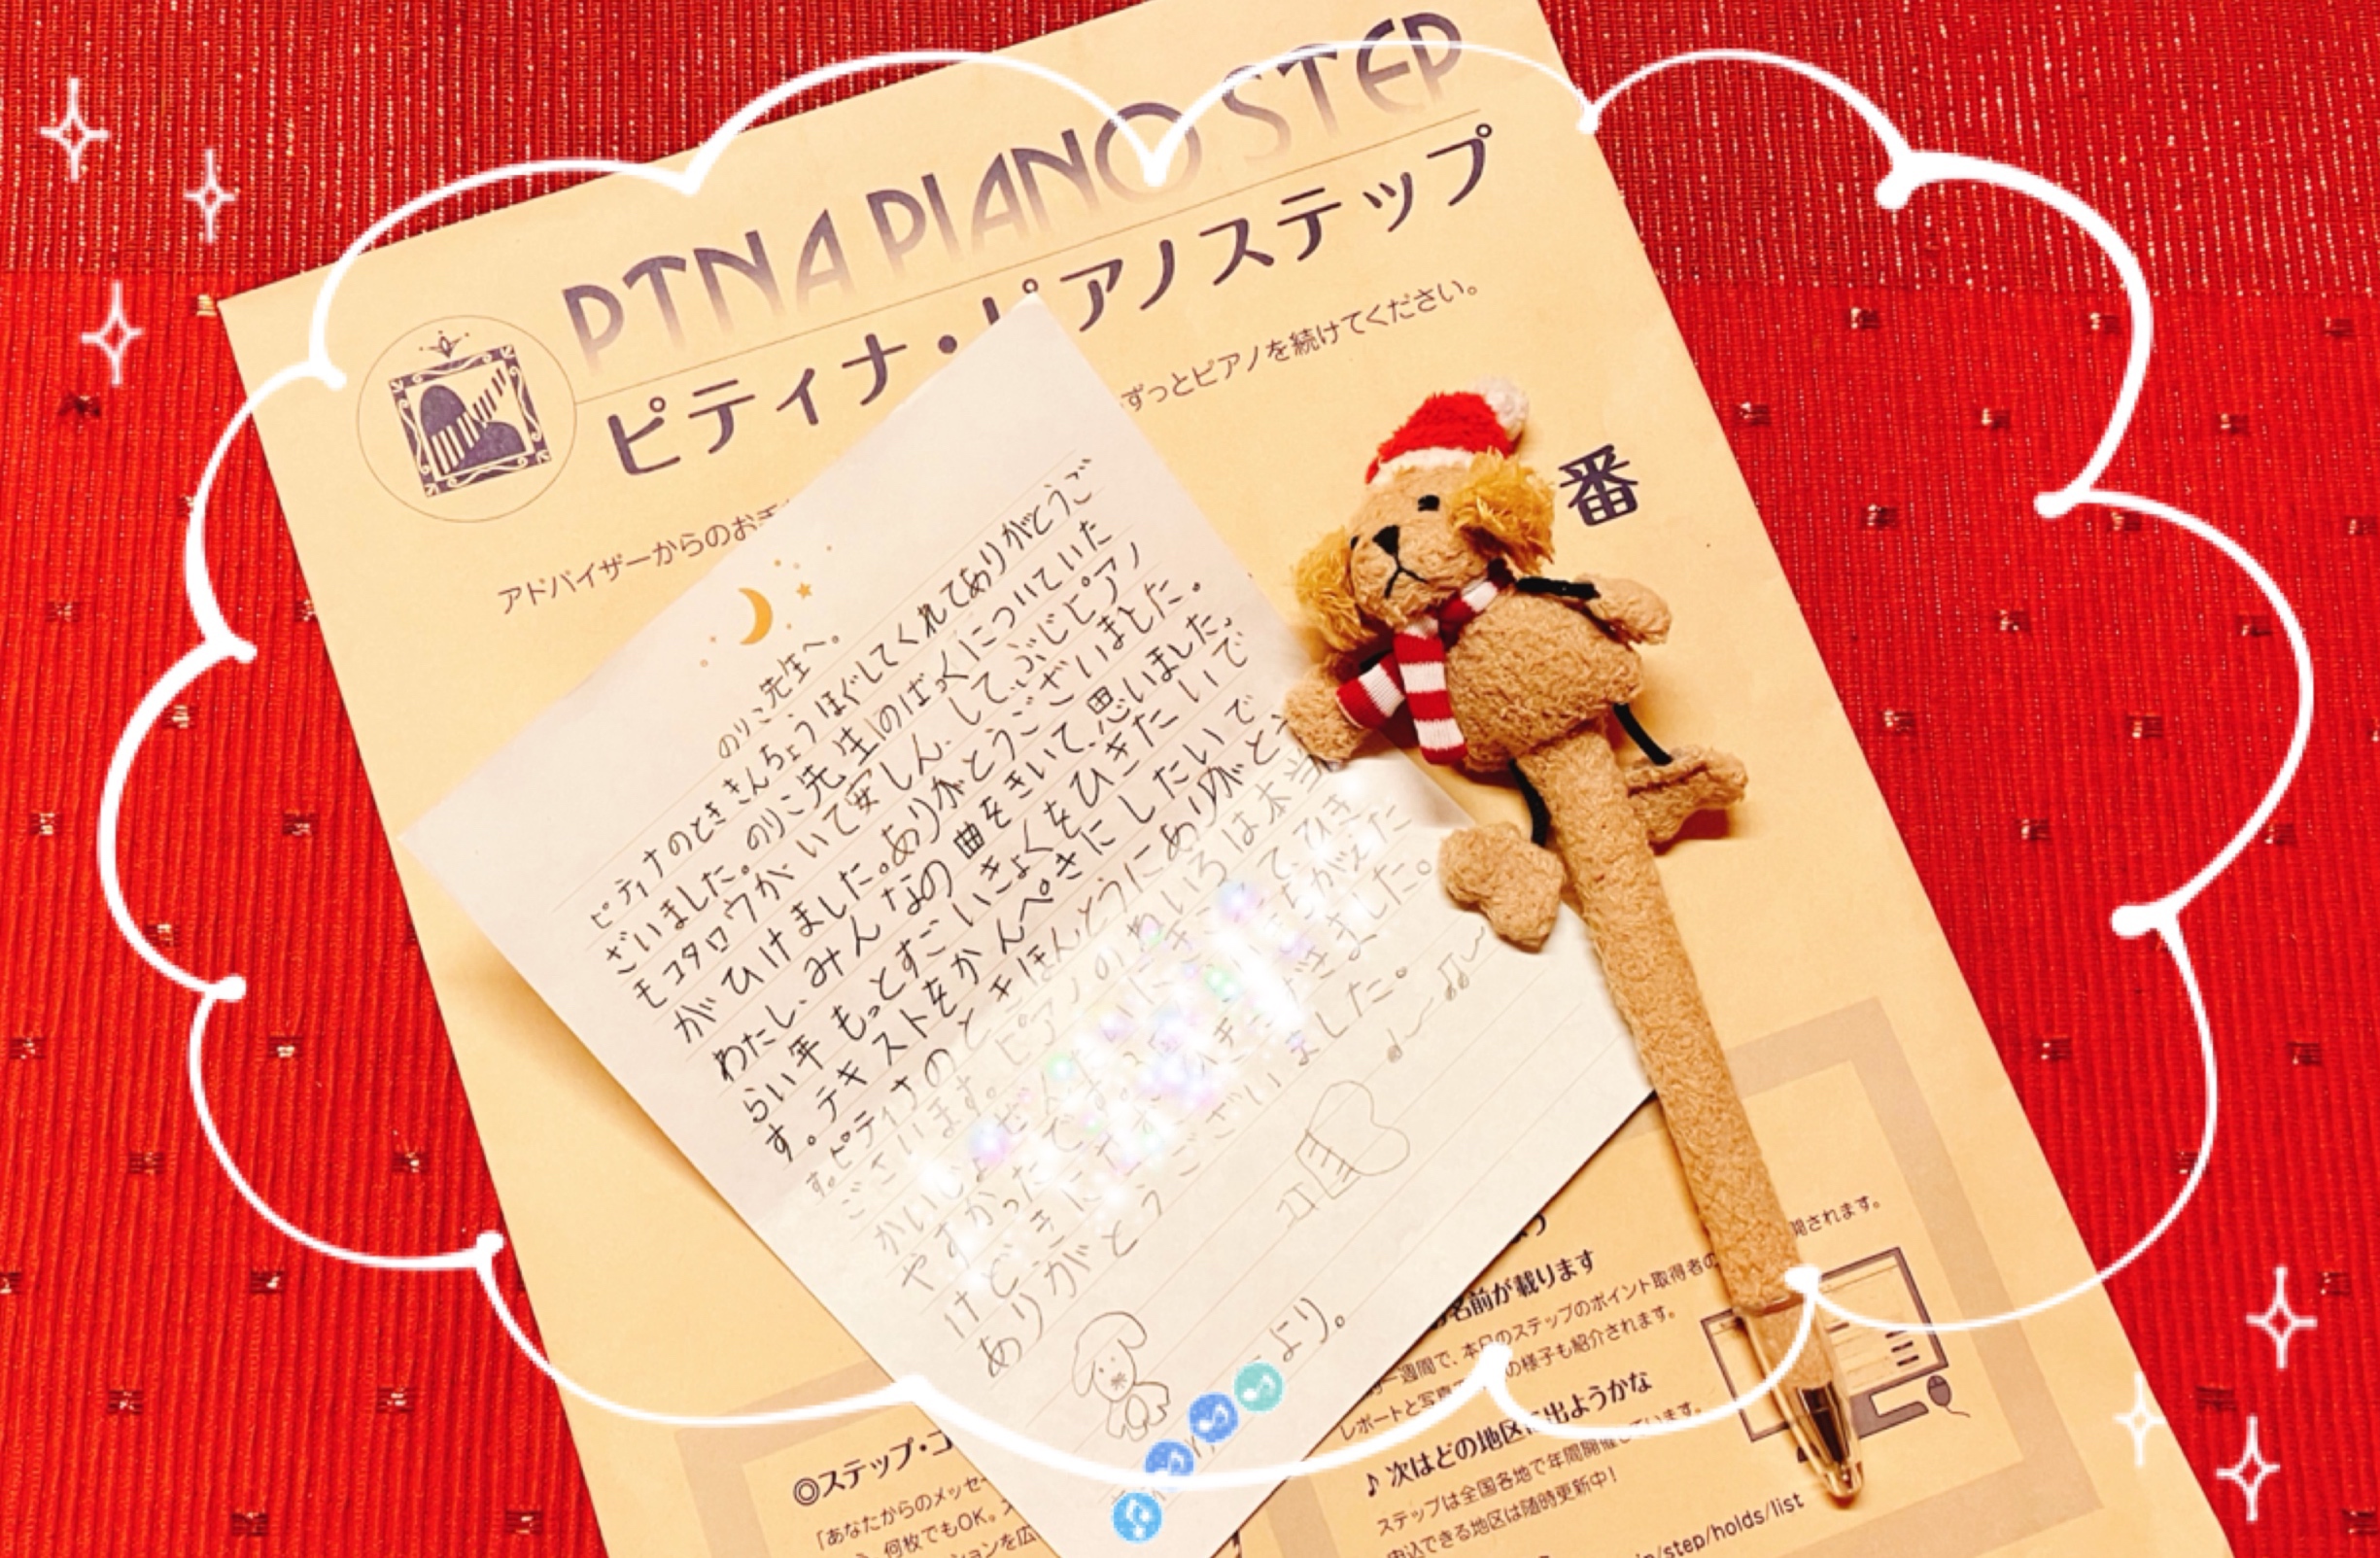 PTNA PIANO STEP
ピティナ・ピアノステップ
ずっとピアノを続けてください。
アドバイザーからのお手
番
のりこ先生へ。
ピティナのとききんちょうほぐしてくれてありがとうご
ざいました。のりこ先生のばっくについていた
モコタロウがいて安しんしてぶじピアノ
がひけました。ありがとうございました。
わたし、みんなの曲をきいて、思いました。
らい年もっとすごいきょくをひきたいで
す。テキストをかんぺきにしたいで
す。ピティナのときほんとうにありがとう
ございます。ピアノのねいろは本当
かいじょぜんたいに
やすかったです。ちがえた
けどさいごまでひききました。
ありがとうございました。
より。
開されます。
名前が載ります
一週間で、本日のステップのポイント取得者の
レポートと写真で の様子も紹介されます。
♪次はどの地区に出ようかな
ステップは全国各地で年間開催しています。
申込できる地区は随時更新中!
/step/holds/list
◎ステップ・コ
「あなたからのメッセー
何枚でもOK。
ションを広